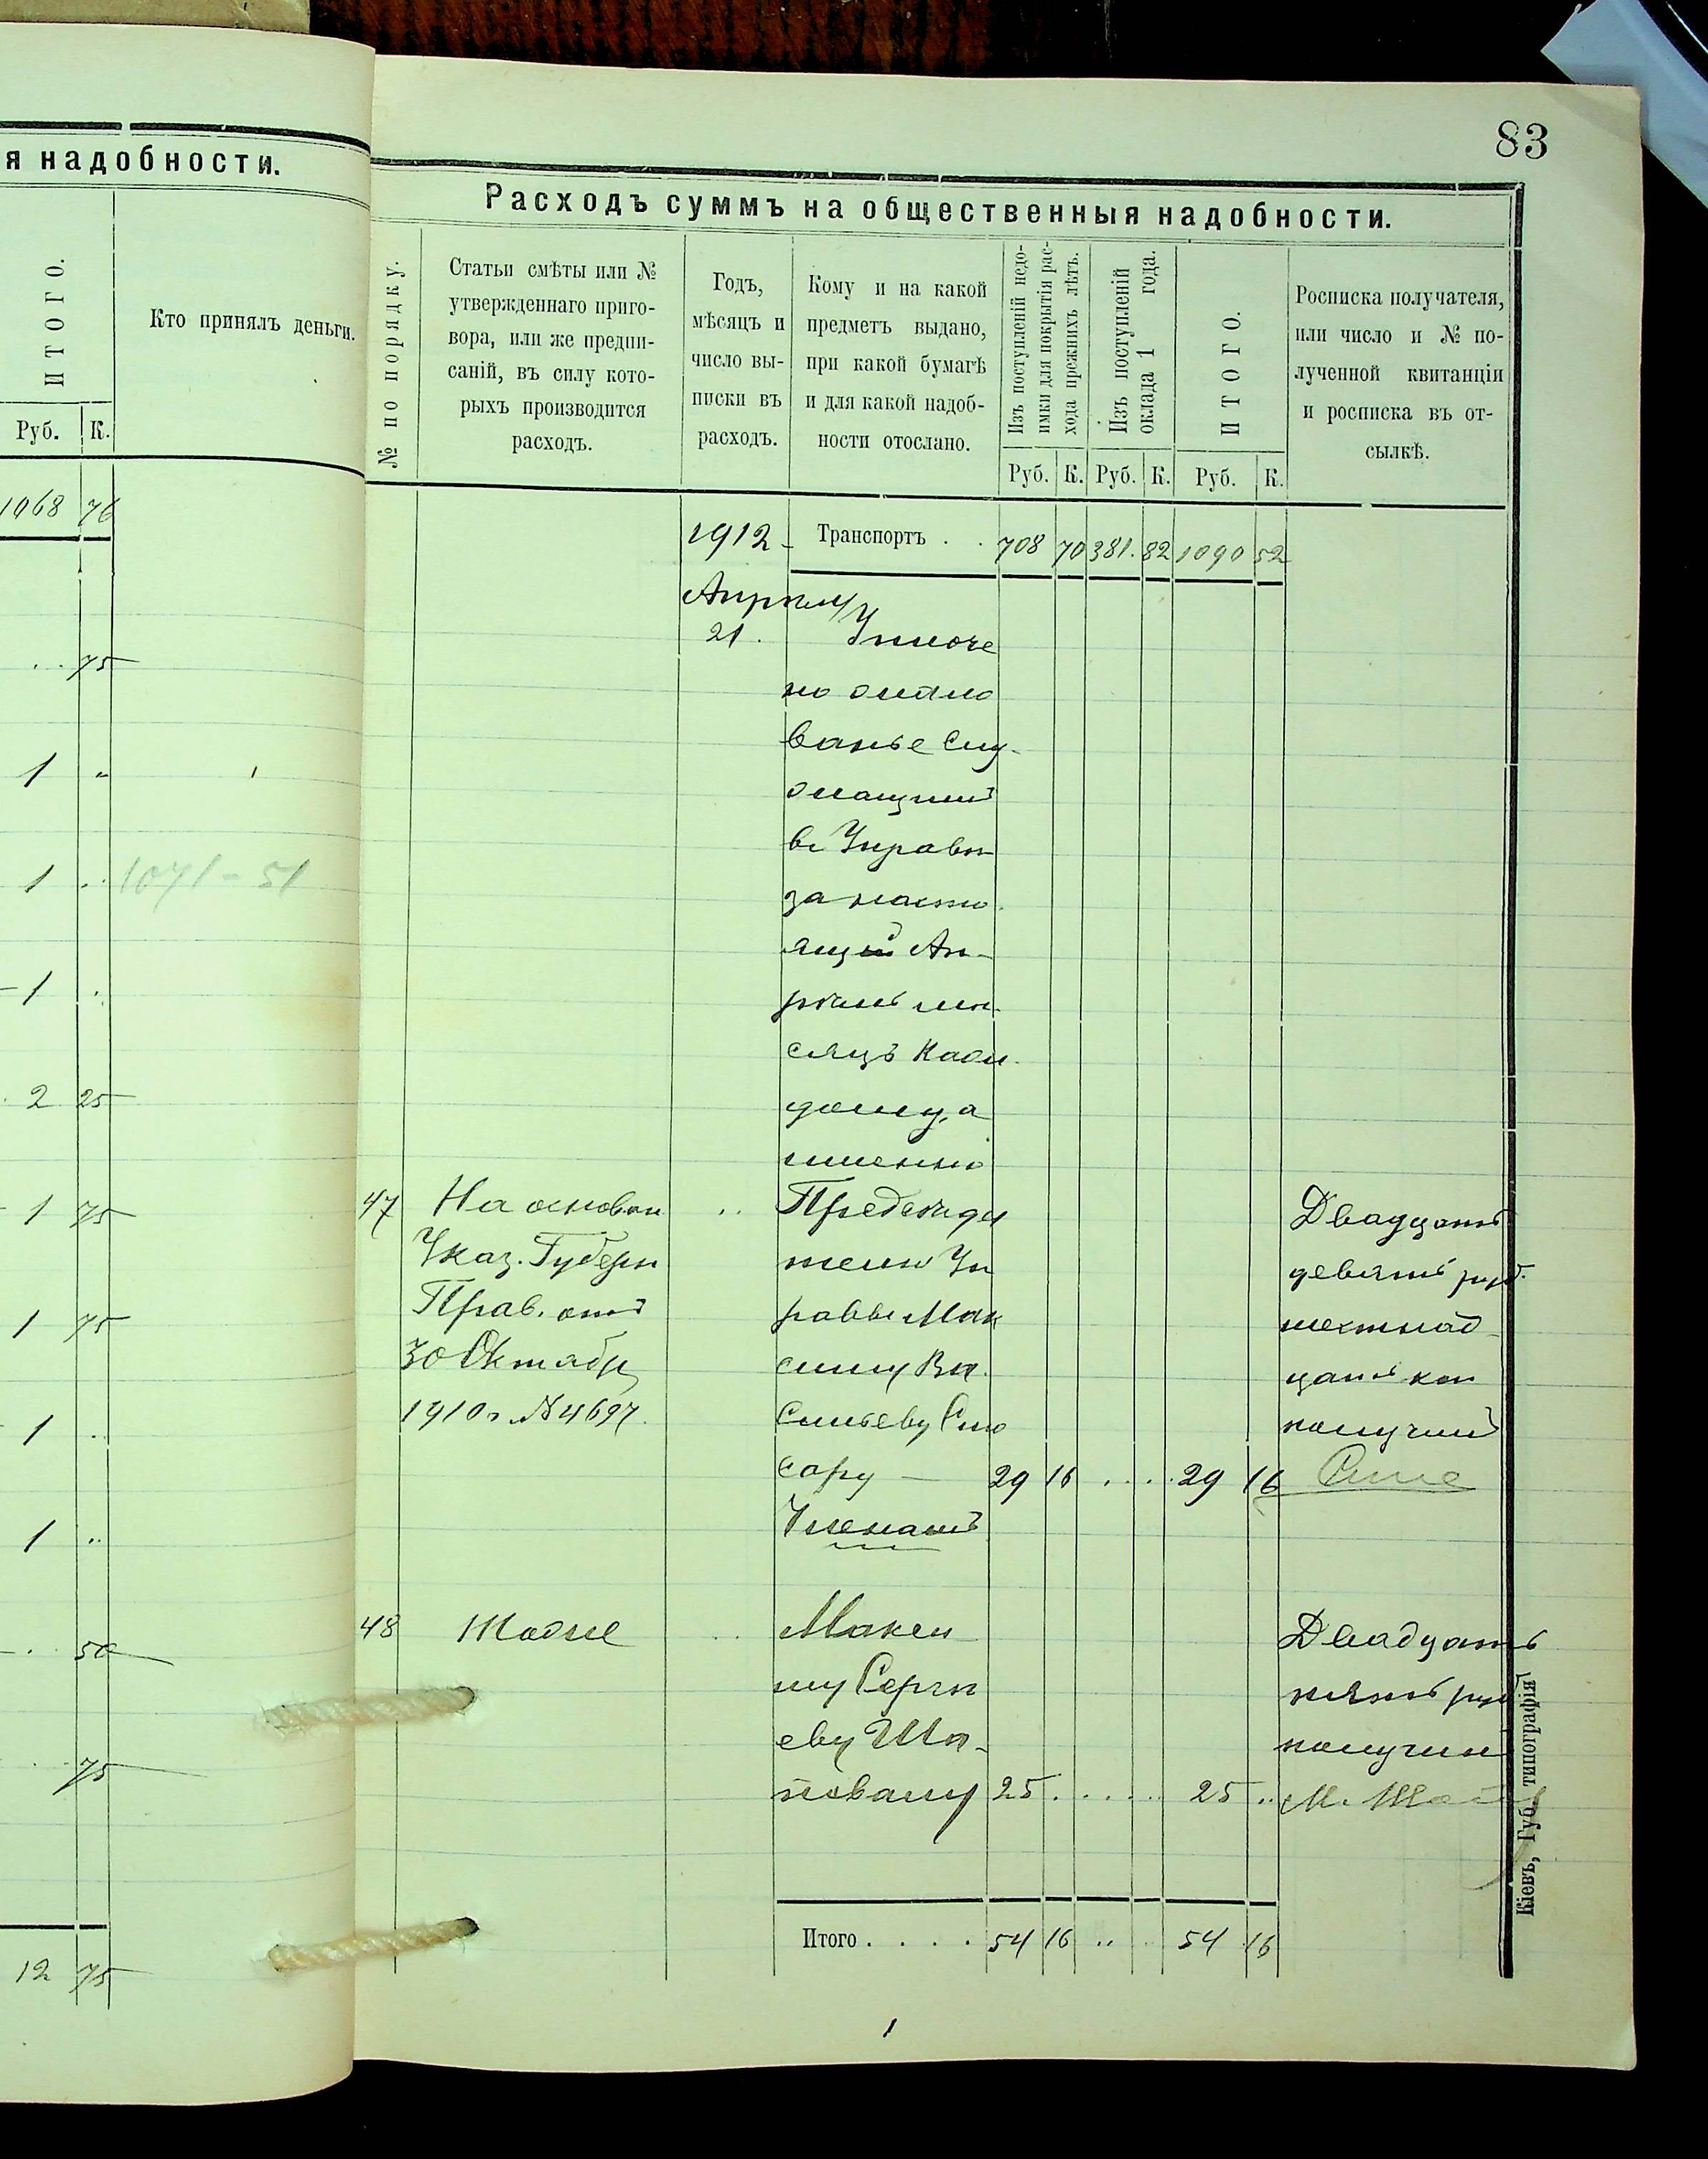 83
я надобности.
ИТОГО.
Кто принялъ деньги.
Руб. К.
1068 76
.. 75
1 "
1 ..
1071-51
1 ..
2 25
1 75
1 75
1 ..
1 ..
. 50
75
12 75
Расходъ суммъ на общественныя надобности.
№ по порядку.
Статьи смѣты или №
утвержденнаго приго-
вора, или же предпи-
саній, въ силу кото-
рыхъ производится
расходъ.
Годъ,
мѣсяцъ и
число вы-
писки въ
расходъ.
Кому и на какой
предметъ выдано,
при какой бумагѣ
и для какой надоб-
ности отослано.
Изъ поступленій недо-
имки для покрытія рас-
хода прежнихъ лѣтъ.
Изъ поступленій
оклада 1 года.
ИТОГО.
Росписка получателя,
или число и № по-
лученной квитанціи
и росписка въ от-
сылкѣ.
Руб. К. Руб. К. Руб. К.
1912 Транспортъ . . 708 70 381. 82 1090 52
Апрѣля
21. Уплоче
но жало
ванье слу-
жащимъ
въ Управѣ
за насто
ящій Ап-
рѣль мѣ-
сяцъ каж
дому, а
именно
47 На основан. .. Предсѣда
Указ. Губерн
Прав. отъ
30 Октября
1910 г. № 4697.
телю Уп
равы Мак
симу Ва
сильеву Сто
сару — 29 16 .... 29 16
Двадцать
девять руб.
шестнад
цать коп
получилъ
48 Тоже .. Макси
му Сергѣ
еву Ша-
повалу 25 ..... 25 ..
Двадцать
пять руб
получилъ
Итого . . . . 54 16 .. 54 16
Кіевъ, Губ. типографія